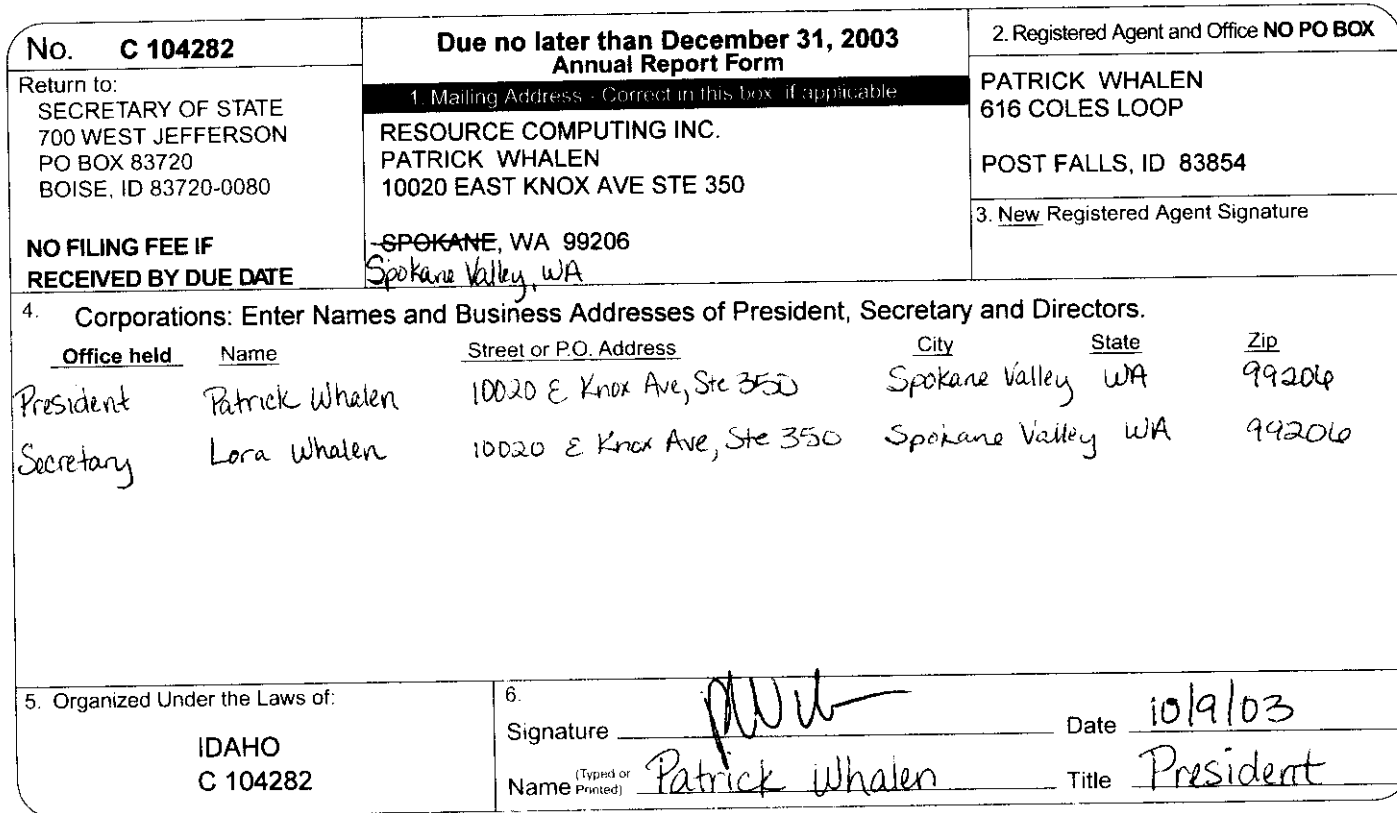 No. C 104282
Return to:
SECRETARY OF STATE
700 WEST JEFFERSON
PO BOX 83720
BOISE, ID 83720-0080
NO FILING FEE IF
RECEIVED BY DUE DATE
Due no later than December 31, 2003
Annual Report Form
1. Mailing Address - Correct in this box if applicable
RESOURCE COMPUTING INC.
PATRICK WHALEN
10020 EAST KNOX AVE STE 350
SPOKANE, WA 99206
Spokane Valley, WA
2. Registered Agent and Office NO PO BOX
PATRICK WHALEN
616 COLES LOOP
POST FALLS, ID 83854
3. New Registered Agent Signature
4. Corporations: Enter Names and Business Addresses of President, Secretary and Directors.
Office held Name Street or P.O. Address City State Zip
President Patrick Whalen 10020 E Knox Ave, Ste 350 Spokane Valley WA 99206
Secretary Lora Whalen 10020 E Knox Ave, Ste 350 Spokane Valley WA 99206
5. Organized Under the Laws of:
IDAHO
C 104282
6.
Signature Date 10/9/03
Name (Typed or Printed) Patrick Whalen Title President